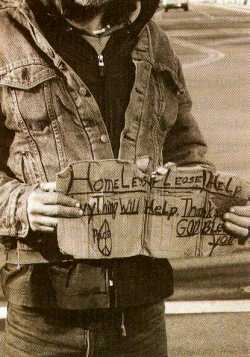 HOMELESS PLEASE HELP
Anything Will Help. Thank
GOD Bless
you